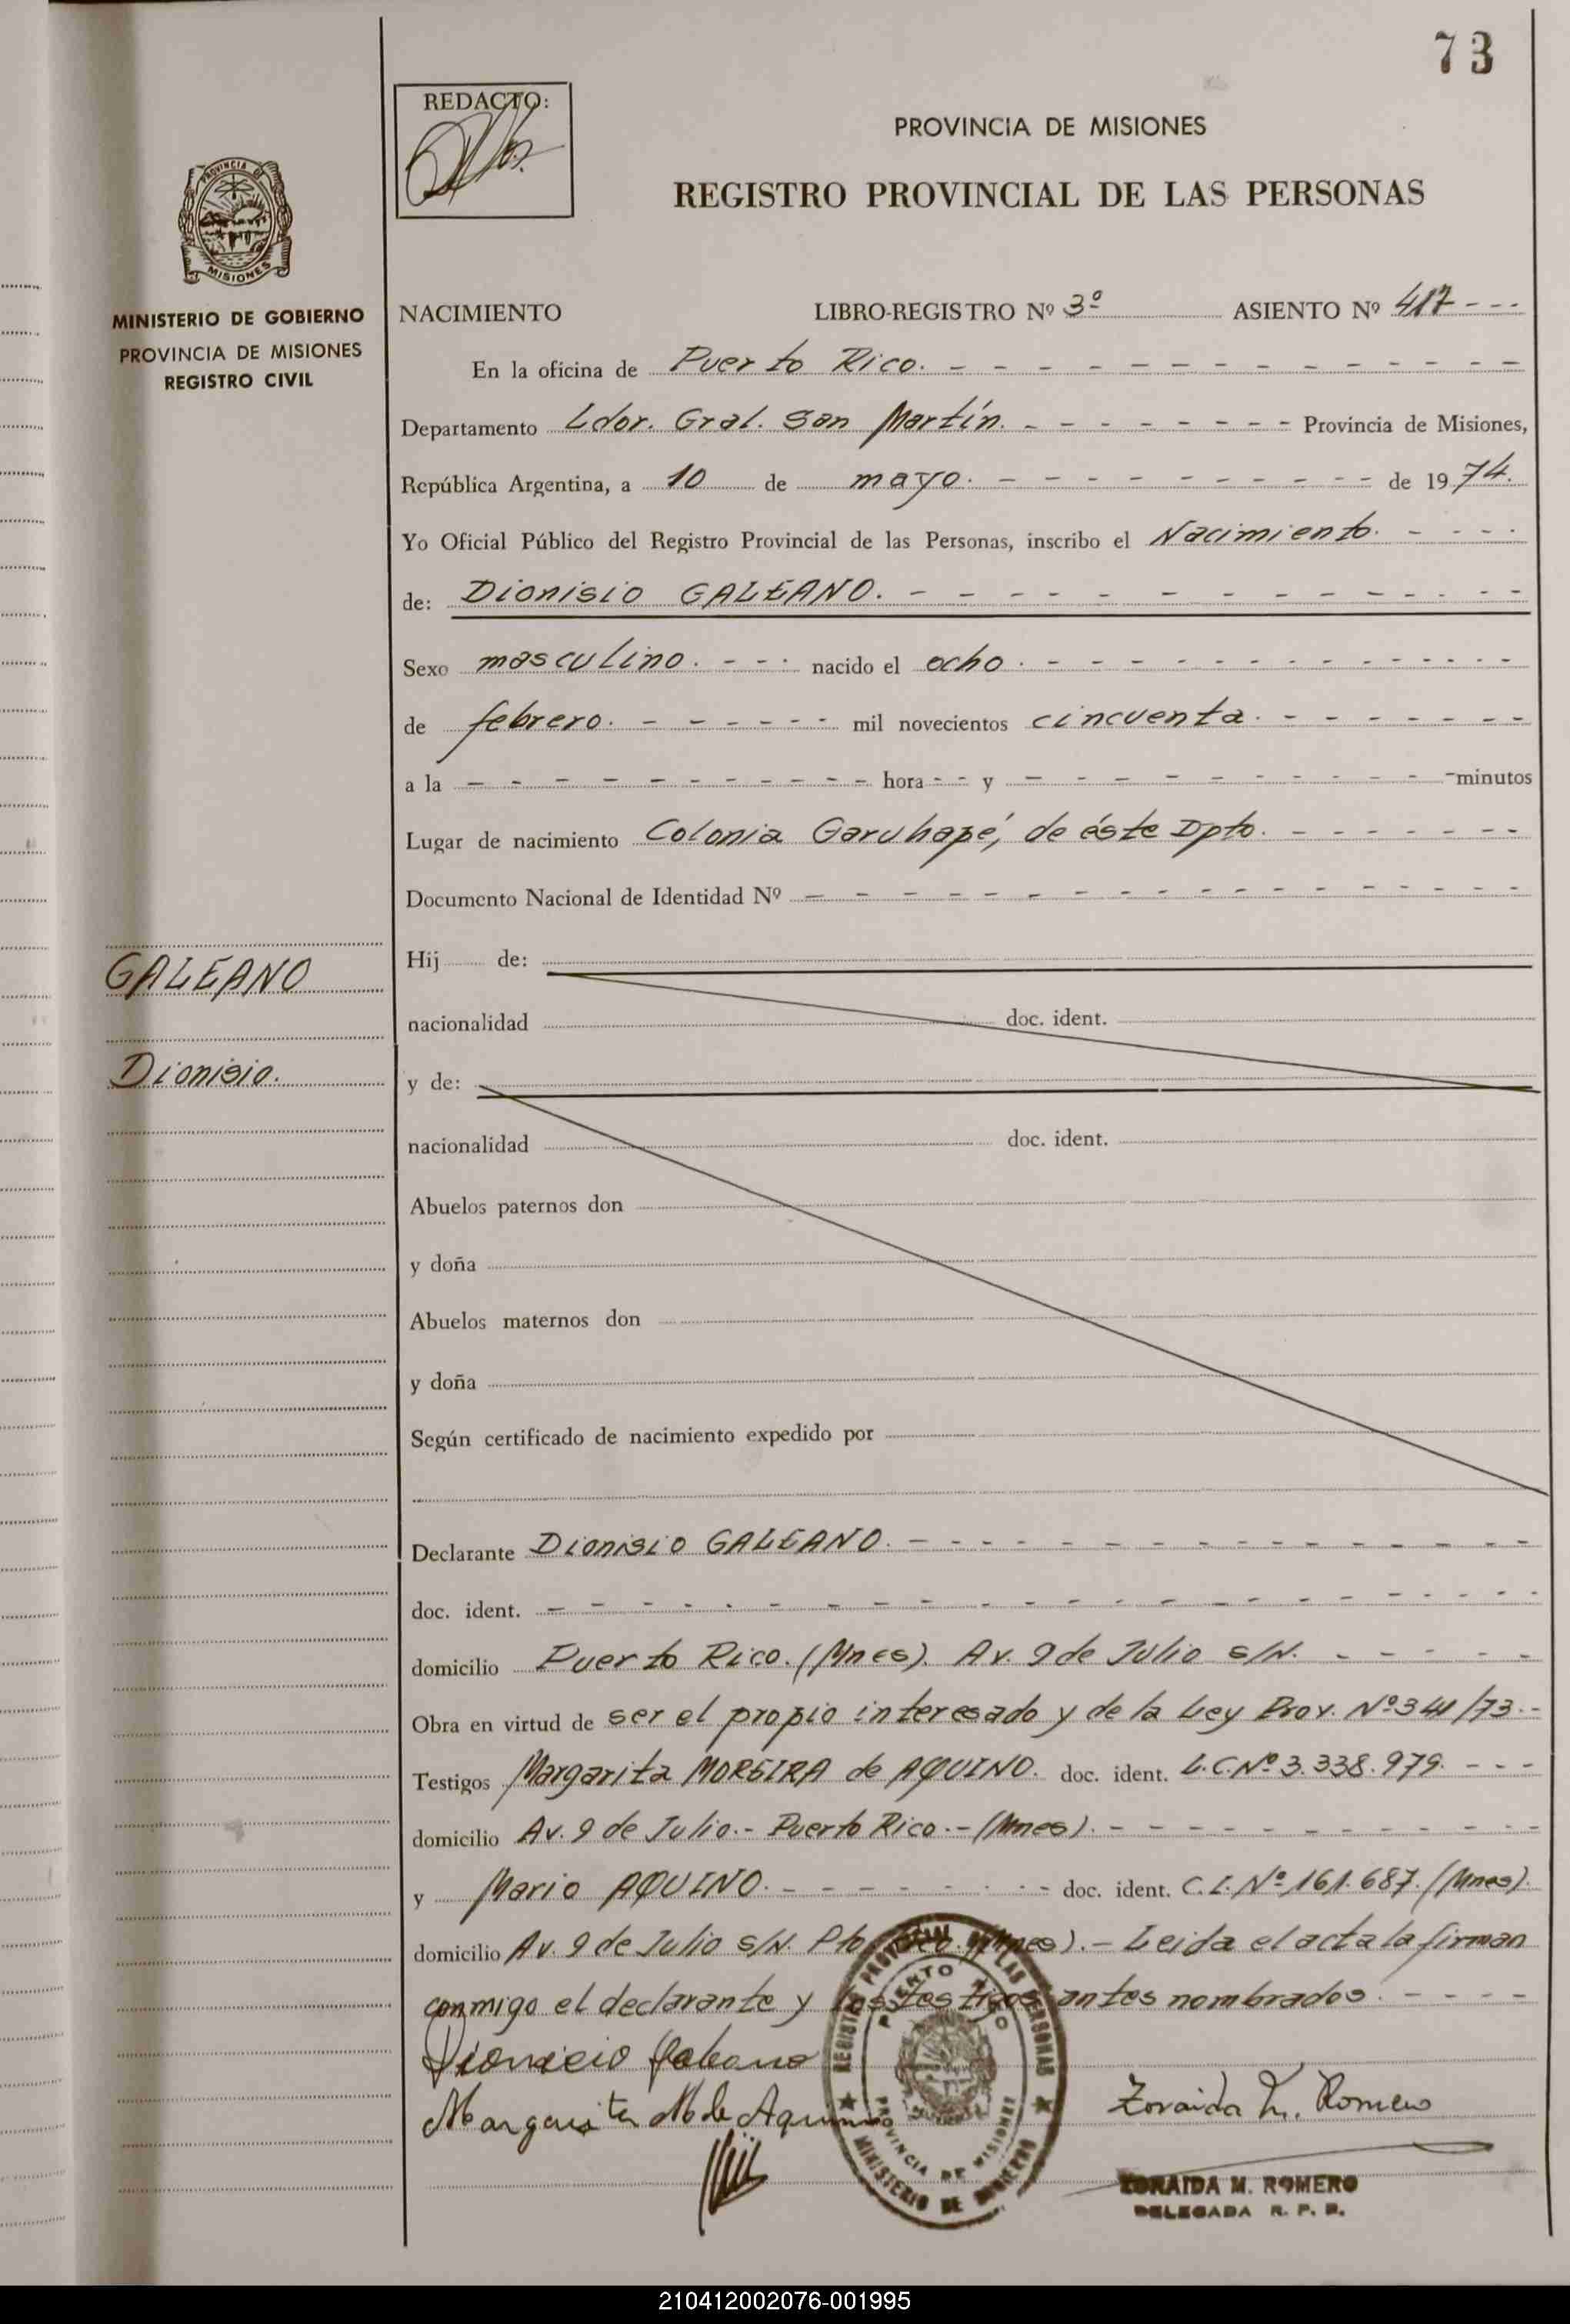 73
REDACTO:
PROVINCIA DE MISIONES
REGISTRO PROVINCIAL DE LAS PERSONAS
PROVINCIA DE
MISIONES
MINISTERIO DE GOBIERNO
PROVINCIA DE MISIONES
REGISTRO CIVIL
NACIMIENTO LIBRO-REGISTRO Nº 3º ASIENTO Nº 417 - - -
En la oficina de Puerto Rico. - - - - - - - - - - - -
Departamento Ldor. Gral. San Martín. - - - - - - - - Provincia de Misiones,
República Argentina, a 10 de mayo. - - - - - - - - - de 1974.
Yo Oficial Público del Registro Provincial de las Personas, inscribo el Nacimiento. - - - -
de: Dionisio GALEANO. - - - - - - - - - - - - -
Sexo masculino. - - - nacido el ocho. - - - - - - - - - - - -
de febrero. - - - - - - mil novecientos cincuenta. - - - - - - -
a la - - - - - - - - - - hora - - y - - - - - - - - - - minutos
Lugar de nacimiento Colonia Garuhapé, de éste Dpto. - - - - - -
Documento Nacional de Identidad Nº - - - - - - - - - - - - - - -
GALEANO
Dionisio.
Hij de:
nacionalidad doc. ident.
y de:
nacionalidad doc. ident.
Abuelos paternos don
y doña
Abuelos maternos don
y doña
Según certificado de nacimiento expedido por
Declarante Dionisio GALEANO. - - - - - - - - - - - - -
doc. ident. - - - - - - - - - - - - - - - - -
domicilio Puerto Rico. (Mnes). Av. 9 de Julio s/N. - - - - -
Obra en virtud de ser el propio interesado y de la Ley Prov. Nº 341/73.-
Testigos Margarita MOREIRA de AQUINO. doc. ident. L.C.Nº 3.338.979. - - -
domicilio Av. 9 de Julio.- Puerto Rico.- (Mnes). - - - - - - - - - -
y Mario AQUINO. - - - - - - - doc. ident. C.I. Nº 161.687. (Mnes).
domicilio Av. 9 de Julio s/N. Pto. Rico. (Mnes).- Leida el acta la firman
conmigo el declarante y los testigos antes nombrados. - - - -
Dionicio Galeano
Margarita M de Aquino
Zoraida M. Romero
REGISTRO PROVINCIAL DE LAS PERSONAS
PUERTO RICO
PROVINCIA DE MISIONES
MINISTERIO DE GOBIERNO
ZORAIDA M. ROMERO
DELEGADA R. P. P.
210412002076-001995